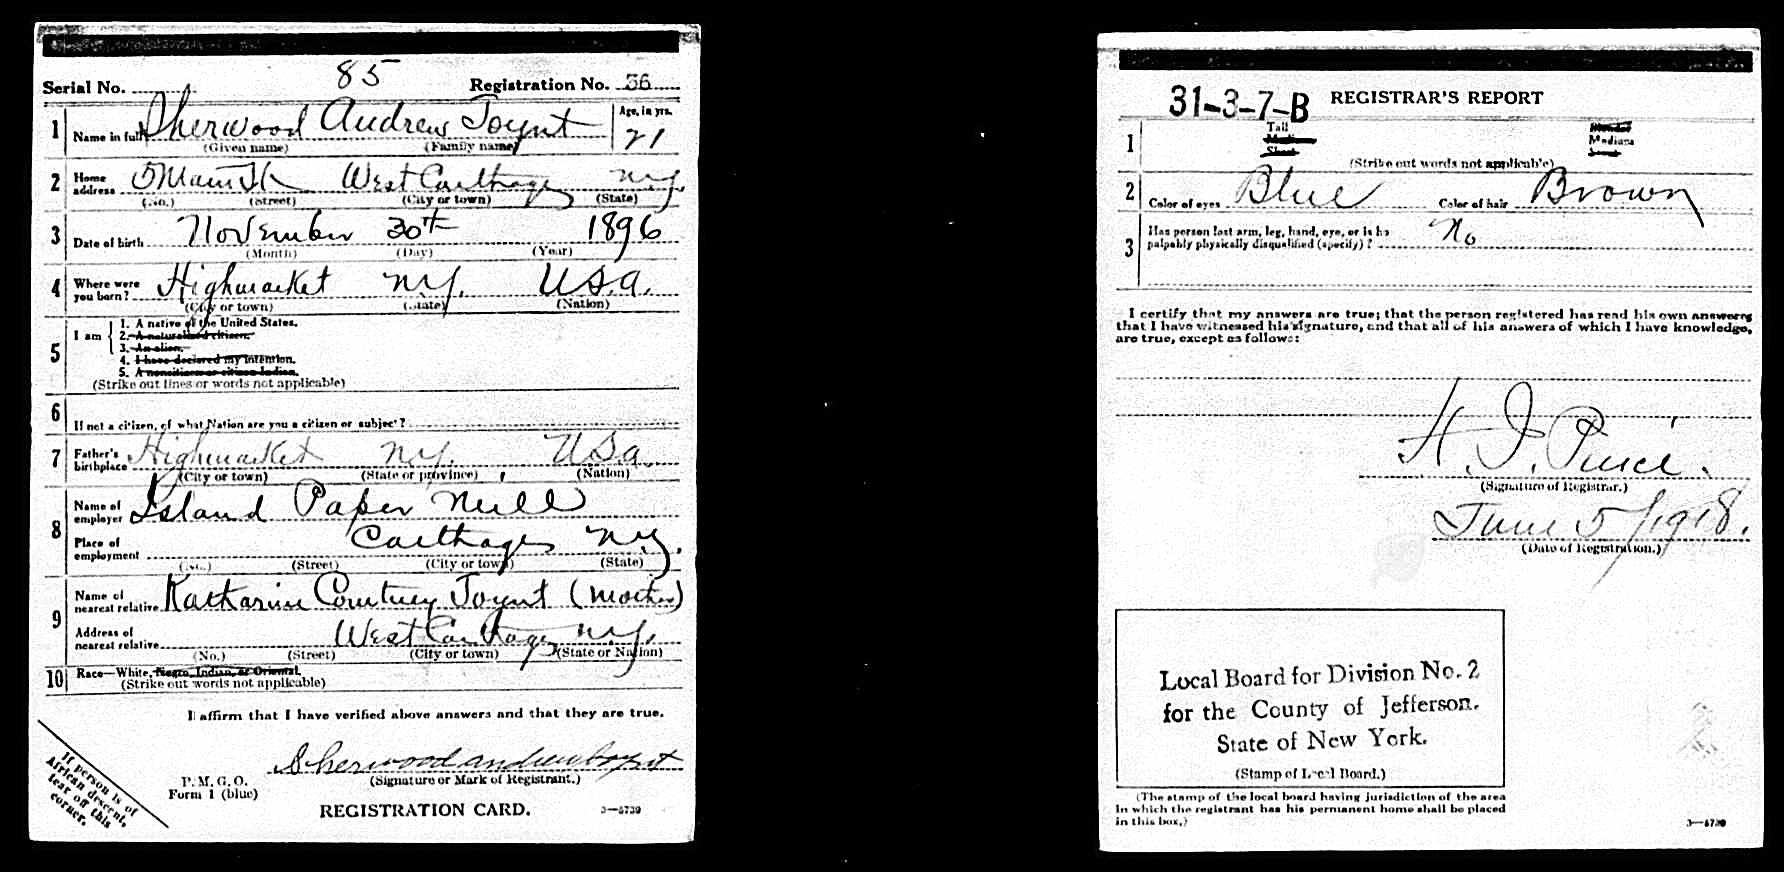 85
Serial No. Registration No. 36
1 Name in full Sherwood Andrew Joynt Age, in yrs. 21
(Given name) (Family name)
2 Home address 5 Main St West Carthage N.Y.
(No.) (Street) (City or town) (State)
3 Date of birth November 30th 1896
(Month) (Day) (Year)
4 Where were you born? Highmarket N.Y. U.S.A.
(City or town) (State) (Nation)
5 I am
1. A native of the United States.
2. A naturalized citizen.
3. An alien.
4. I have declared my intention.
5. A noncitizen or citizen Indian.
(Strike out lines or words not applicable)
6 If not a citizen, of what Nation are you a citizen or subject?
7 Father's birthplace Highmarket N.Y. U.S.a.
(City or town) (State or province) (Nation)
8 Name of employer Island Paper Mill
Place of employment Carthage N.Y.
(No.) (Street) (City or town) (State)
9 Name of nearest relative Katharine Courtney Joynt (Mother)
Address of nearest relative West Carthage N.Y.
(No.) (Street) (City or town) (State or Nation)
10 Race—White, Negro, Indian, or Oriental.
(Strike out words not applicable)
I affirm that I have verified above answers and that they are true.
Sherwood andrew Joynt
P. M. G. O. (Signature or Mark of Registrant.)
Form 1 (blue)
REGISTRATION CARD. 3—5739
If person is of
African descent,
tear off this
corner.
31-3-7-B REGISTRAR'S REPORT
1 Tall Slender
Medium Medium
Short Stout
(Strike out words not applicable)
2 Color of eyes Blue Color of hair Brown
3 Has person lost arm, leg, hand, eye, or is he
palpably physically disqualified (specify)? No
I certify that my answers are true; that the person registered has read his own answers
that I have witnessed his signature, and that all of his answers of which I have knowledge,
are true, except as follows:
(Signature of Registrar.)
June 5/1918.
(Date of Registration.)
Local Board for Division No. 2
for the County of Jefferson.
State of New York.
(Stamp of Local Board.)
(The stamp of the local board having jurisdiction of the area
in which the registrant has his permanent home shall be placed
in this box.)
3—5739